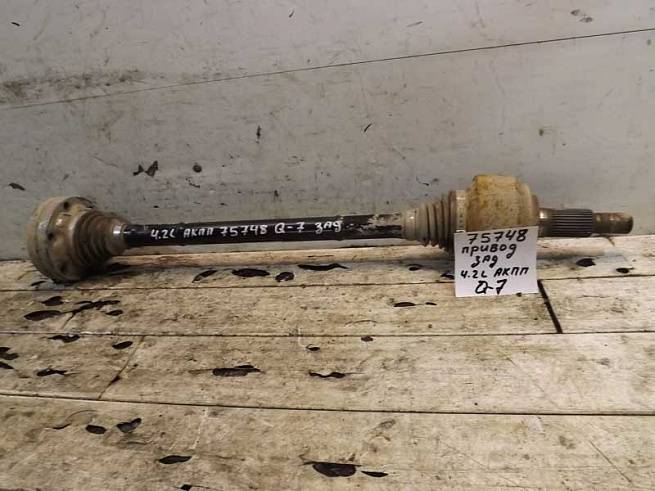 4.2L АКПП 75748 Q-7 ЗАД
75748
ПРИВОД
ЗАД
4.2L АКПП
Q-7